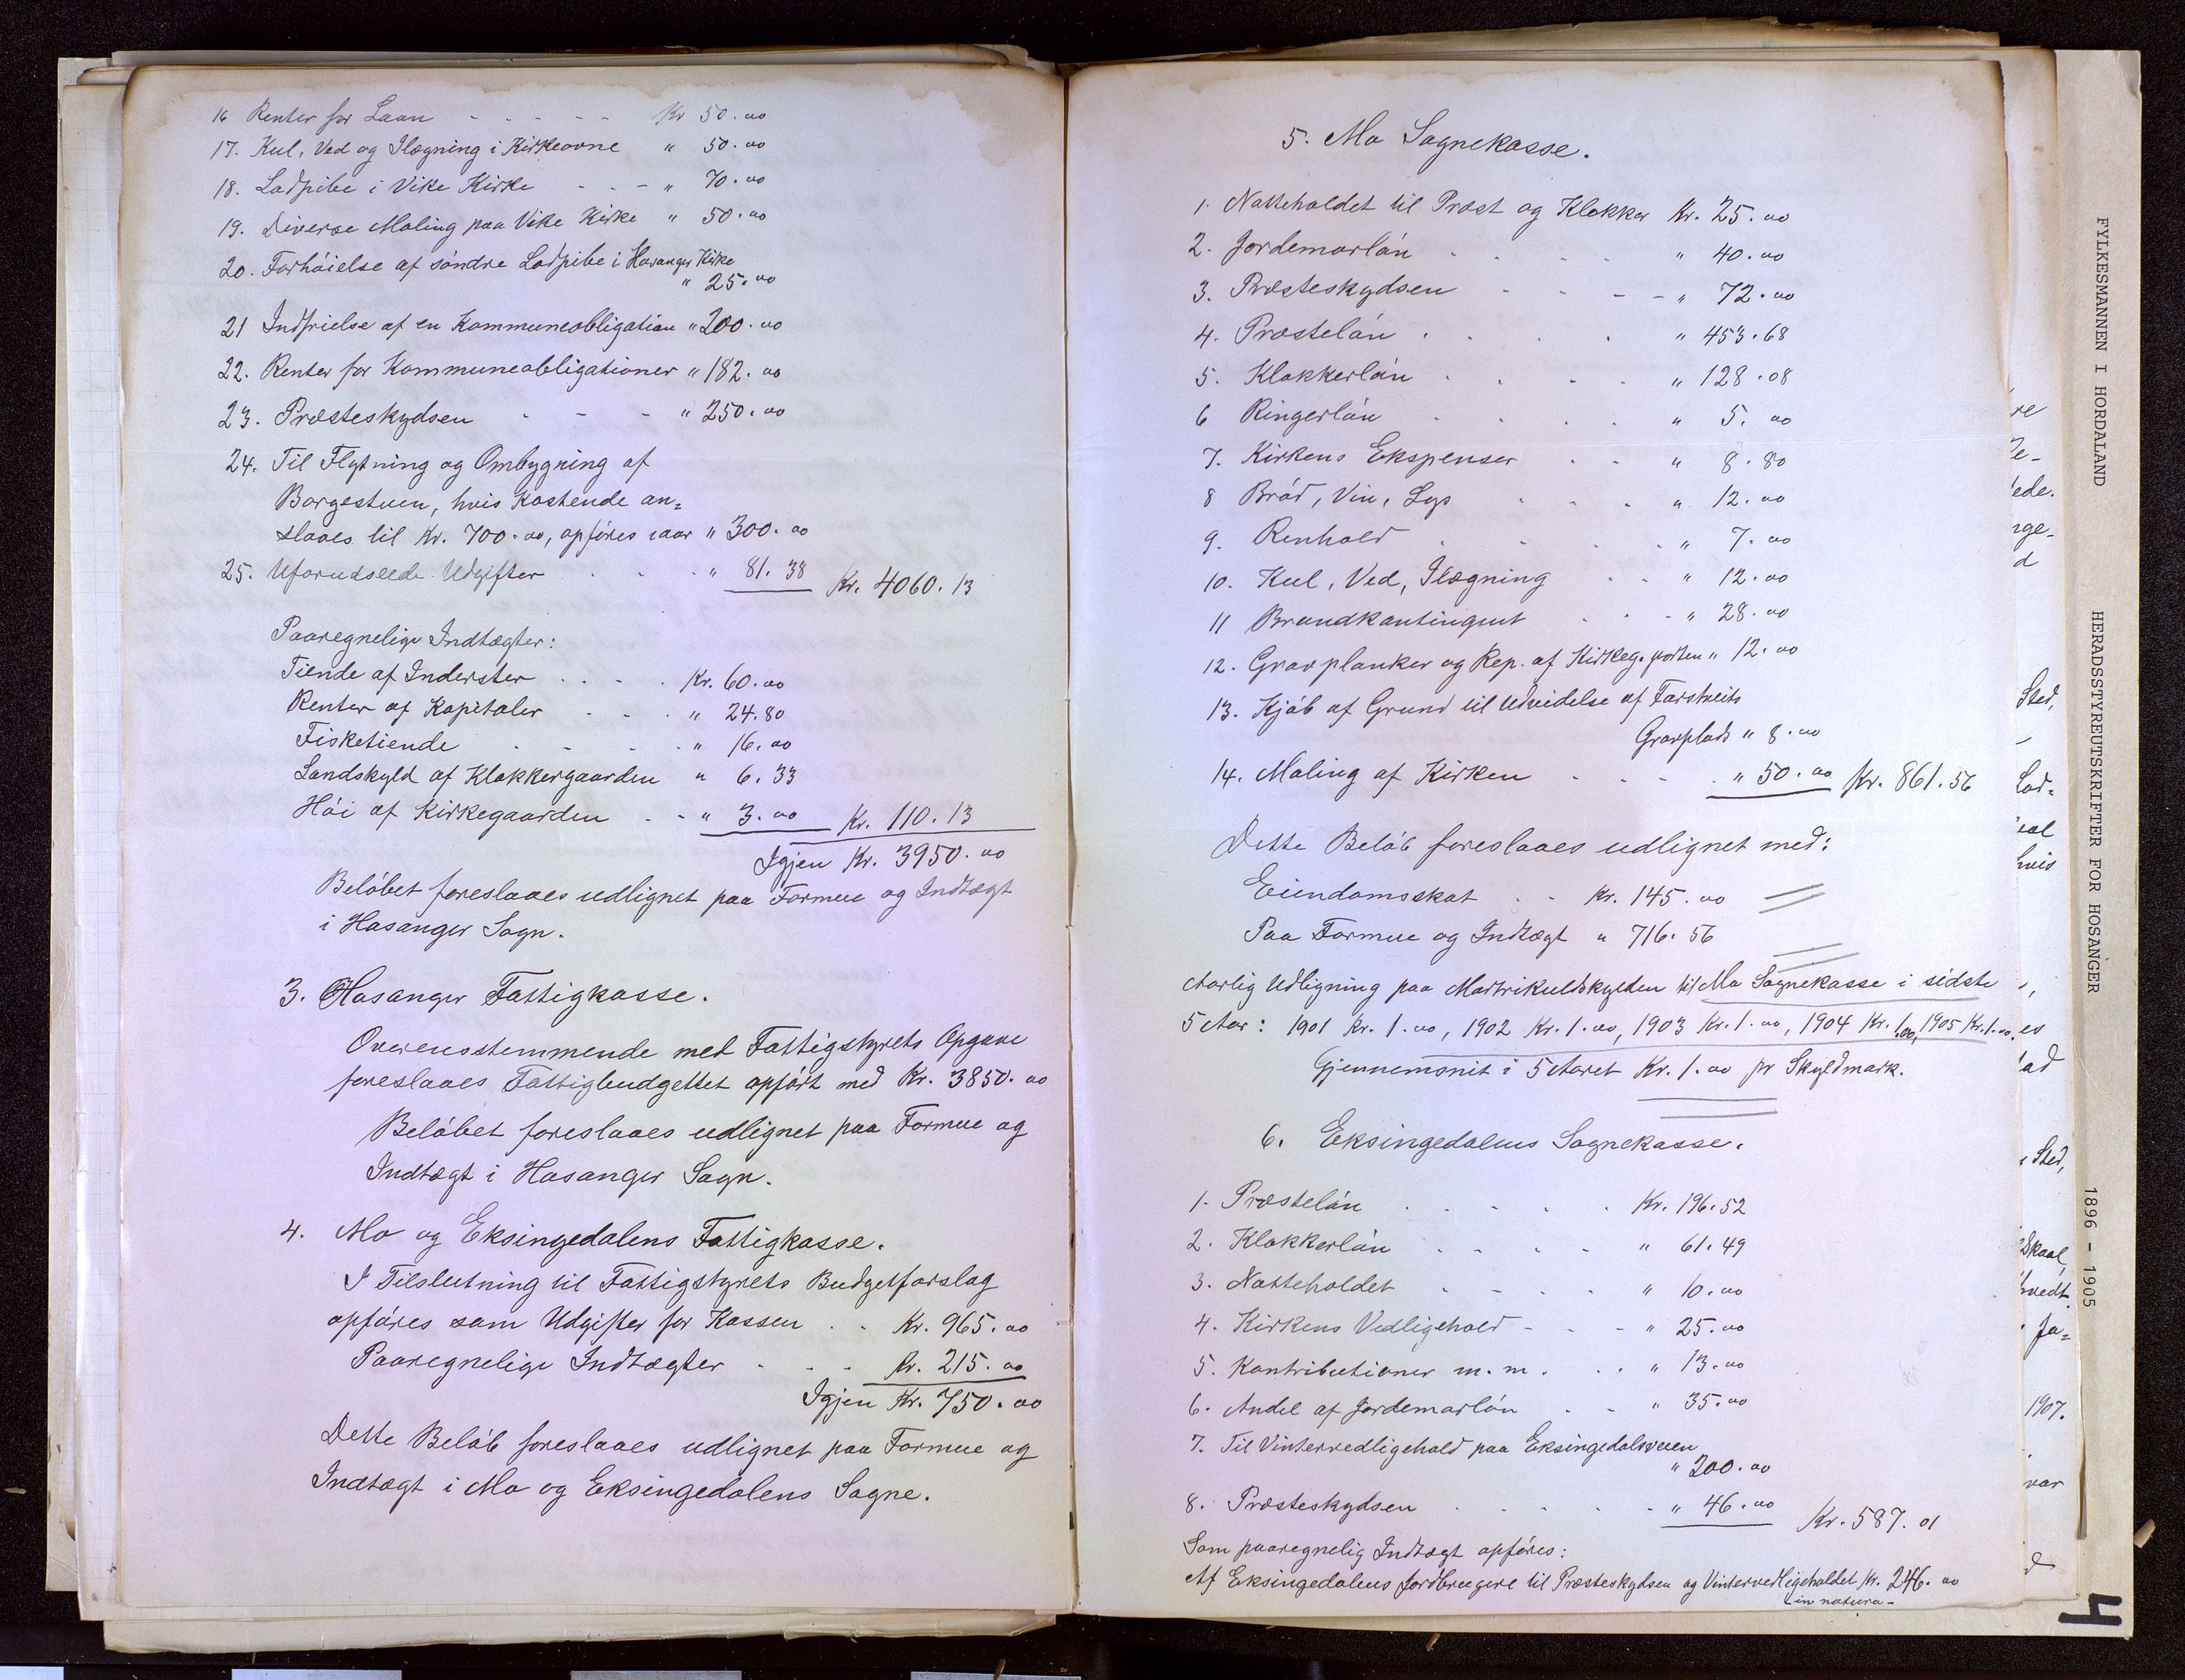 16 Renter for Laan - - - - - Kr 50.00
17. Kul, Ved og Ilægning i Kirkeovne " 50.00
18. Ladpibe i Vike Kirke - - - " 70.00
19. Diverse Maling paa Vike Kirke " 50.00
20. Forhöielse af söndre Ladpibe i Hosanger Kirke
" 25.00
21 Indfrielse af en Kommuneobligation " 200.00
22. Renter for Kommuneobligationer " 182.00
23. Præsteskydsen - - - " 250.00
24. Til Flytning og Ombygning af
Borgestuen, hvis Kostende an=
slaaes til Kr. 700.00, opföres iaar " 300.00
25. Uforudseede Udgifter . . . " 81.38 Kr. 4060.13
Paaregnelige Indtægter:
Tiende af Inderster . . . . Kr. 60.00
Renter af Kapitaler . . . " 24.80
Fisketiende . . . . " 16.00
Landskyld af Klokkergaarden " 6.33
Höi af Kirkegaarden . . " 3.00 Kr. 110.13
Igjen Kr. 3950.00
Belöbet foreslaaes udlignet paa Formue og Indtægt
i Hosanger Sogn.
3. Hosanger Fattigkasse.
Overensstemmende med Fattigstyrets Opgave
foreslaaes Fattigbudgettet opfört med Kr. 3850.00
Belöbet foreslaaes udlignet paa Formue og
Indtægt i Hosanger Sogn.
4. Mo og Eksingedalens Fattigkasse.
I Tilslutning til Fattigstyrets Budgetforslag
opföres som Udgifter for Kassen . . Kr. 965.00
Paaregnelige Indtægter . . . Kr. 215.00
Igjen Kr. 750.00
Dette Belöb foreslaaes udlignet paa Formue og
Indtægt i Mo og Eksingedalens Sogne.
5. Mo Sognekasse.
1. Natteholdet til Præst og Klokker Kr. 25.00
2. Jordemorlön . . . . " 40.00
3. Præsteskydsen - - - - " 72.00
4. Præstelön . . . . " 453.68
5. Klokkerlön . . . . " 128.08
6 Ringerlön . . . . " 5.00
7. Kirkens Ekspenser . . " 8.80
8 Bröd, Vin, Lys . . . " 12.00
9. Renhold . . . . " 7.00
10. Kul, Ved, Ilægning . . " 12.00
11 Brandkontingent . . - " 28.00
12. Gravplanker og Rep. af Kirkeg.porten " 12.00
13. Kjöb af Grund til Udvidelse af Farstveits
Gravplads " 8.00
14. Maling af Kirken . . . . " 50.00 Kr. 861.56
Dette Belöb foreslaaes udlignet med:
Eiendomsskat . . Kr. 145.00
Paa Formue og Indtægt " 716.56
Aarlig Udligning paa Matrikulskylden til Mo Sognekasse i sidste
5 Aar: 1901 Kr. 1.00, 1902 Kr. 1.00, 1903 Kr. 1.00, 1904 Kr. 1.00, 1905 Kr. 1.00.
Gjennemsnit i 5 Aaret Kr. 1.00 pr Skyldmark.
6. Eksingedalens Sognekasse.
1. Præstelön . . . . . Kr. 196.52
2. Klokkerlön . . . . " 61.49
3. Natteholdet . . . . " 10.00
4. Kirkens Vedligehold - - - " 25.00
5. Kontributioner m.m. . . " 13.00
6. Andel af Jordemorlön . . " 35.00
7. Til Vintervedligehold paa Eksingedalsveien
" 200.00
8. Præsteskydsen . . . . " 46.00 Kr. 587.01
Som paaregnelig Indtægt opföres:
Af Eksingedalens Jordbrugere til Præsteskydsen og Vintervedligeholdet Kr. 246.00
- in natura -
re
ede.
d
Sted,
Lad=
hvis
es
ad
Sted,
Skaal
Jo=
1907.
var
FYLKESMANNEN I HORDALAND HERADSSTYREUTSKRIFTER FOR HOSANGER 1896 - 1905
4